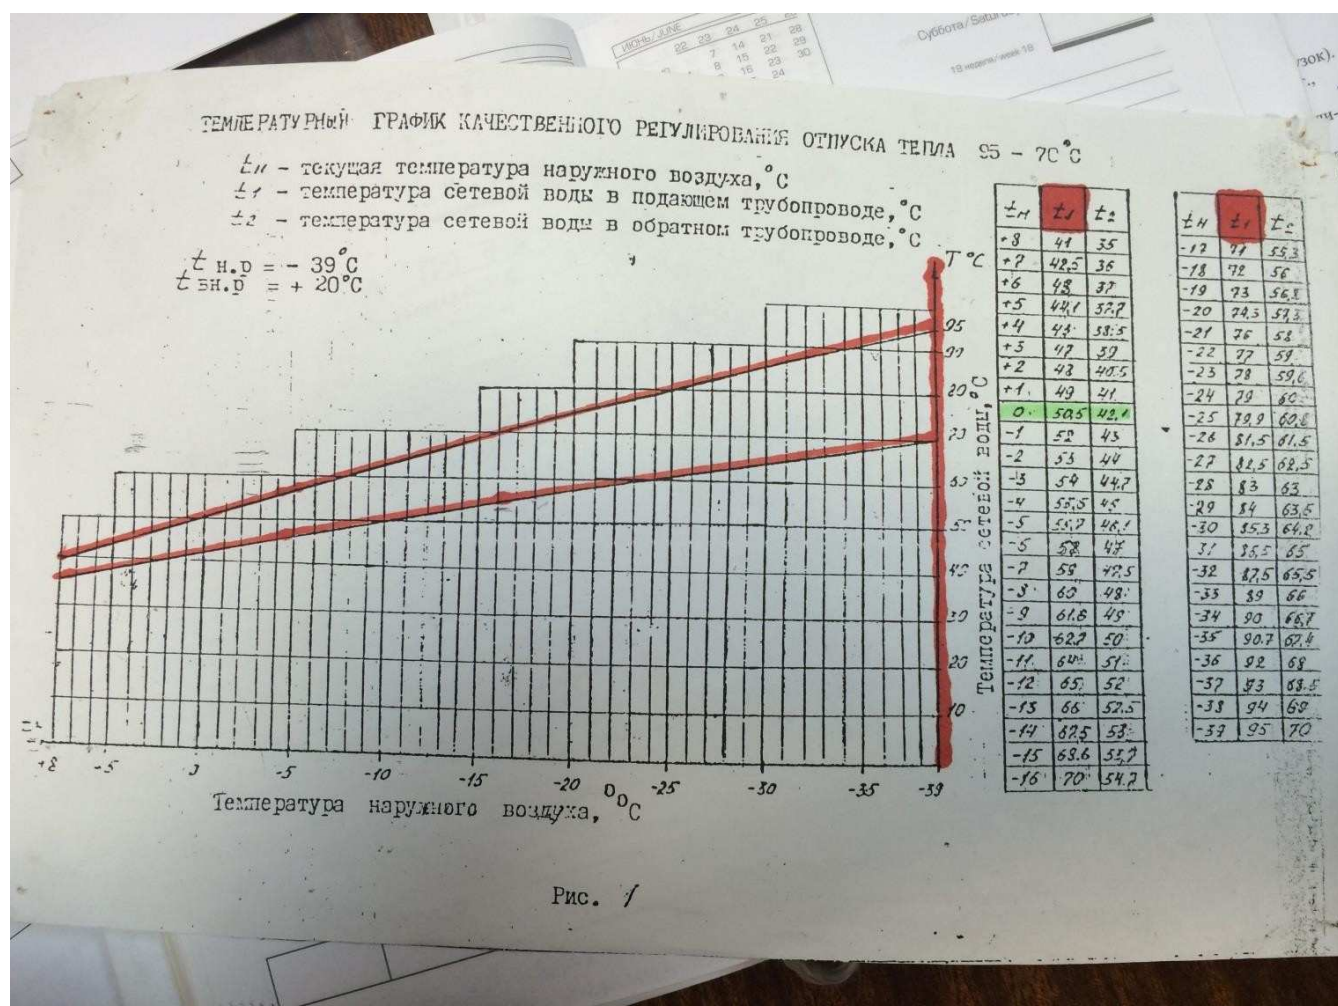 ИЮНЬ/JUNE
22 23 24 25
7 14 21 28
8 15 22 29
16 23 30
24
Суббота/
18 неделя/week 18
узок).
ТЕМПЕРАТУРНЫЙ ГРАФИК КАЧЕСТВЕННОГО РЕГУЛИРОВАНИЯ ОТПУСКА ТЕПЛА 95 - 70°С
tн - текущая температура наружного воздуха,°С
t1 - температура сетевой воды в подающем трубопроводе,°С
t2 - температура сетевой воды в обратном трубопроводе,°С
t н.р = - 39°С
t вн.р = + 20°С
Т°С
95
90
80
70
60
50
40
30
20
10
Температура сетевой воды,°С
+8 -5 0 -5 -10 -15 -20 -25 -30 -35 -39
Температура наружного воздуха, °С
Рис. 1
tн t1 t2
+8 41 35
+7 42,5 36
+6 43 37
+5 44,1 37.7
+4 38.5
+3 47 39
+2 48 40.5
+1 49 41
0 50,5 42,1
-1 52 43
-2 53 44
-3 54 44.7
-4 55,5 45
-5 46,1
58 47
-7 59 47,5
-8 60 48
-9 61.6 49
-10 62.7 50
-11 64 51
-12 65 52
-13 66 52.5
-14 67.5 53
-15 68.6 53,7
-16 70 54.7
tн t1 t2
-17 71 55,3
-18 72 56
-19 73 56,8
-20 74,3 57,3
-21 76 58
-22 77 59
-23 78 59,6
-24 79 60
-25 79,9 60,8
-26 81,5 61.5
-27 82,5 62,5
-28 83 63
-29 84 63,5
-30 85.3 64.2
31 86,5 65
-32 87,5 65,5
-33 89 66
-34 90 66,7
-35 90.7 67,4
-36 92 68
-37 93 68.5
-38 94 69
-39 95 70